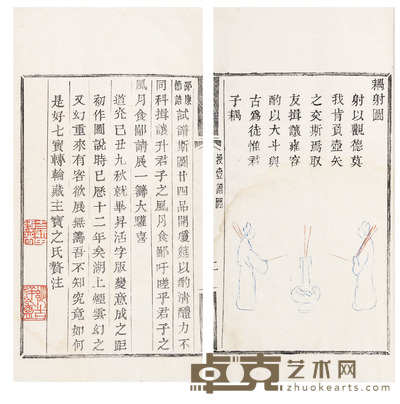 耦射圖
射以觀德莫
我肯負壺矢
之交斯焉取
友揖讓雍容
酌以大斗與
古為徒惟君
子耦
投壺譜圖
試譜斯圖廿四品開瓊筵以酌清醴力不
同科揖讓升君子之風月食鄙吁嗟乎君子之
風月食鄙請展一籌大驩喜
道光己丑九秋就畢昇活字版變意成之距
初作圖說時已歷十二年矣湖上煙雲幻之
又幻重來有客欲展無籌吾不知究竟如何
是好七寶轉輪藏主寶之氏贅注
卓克艺术网
www.zhuokearts.com